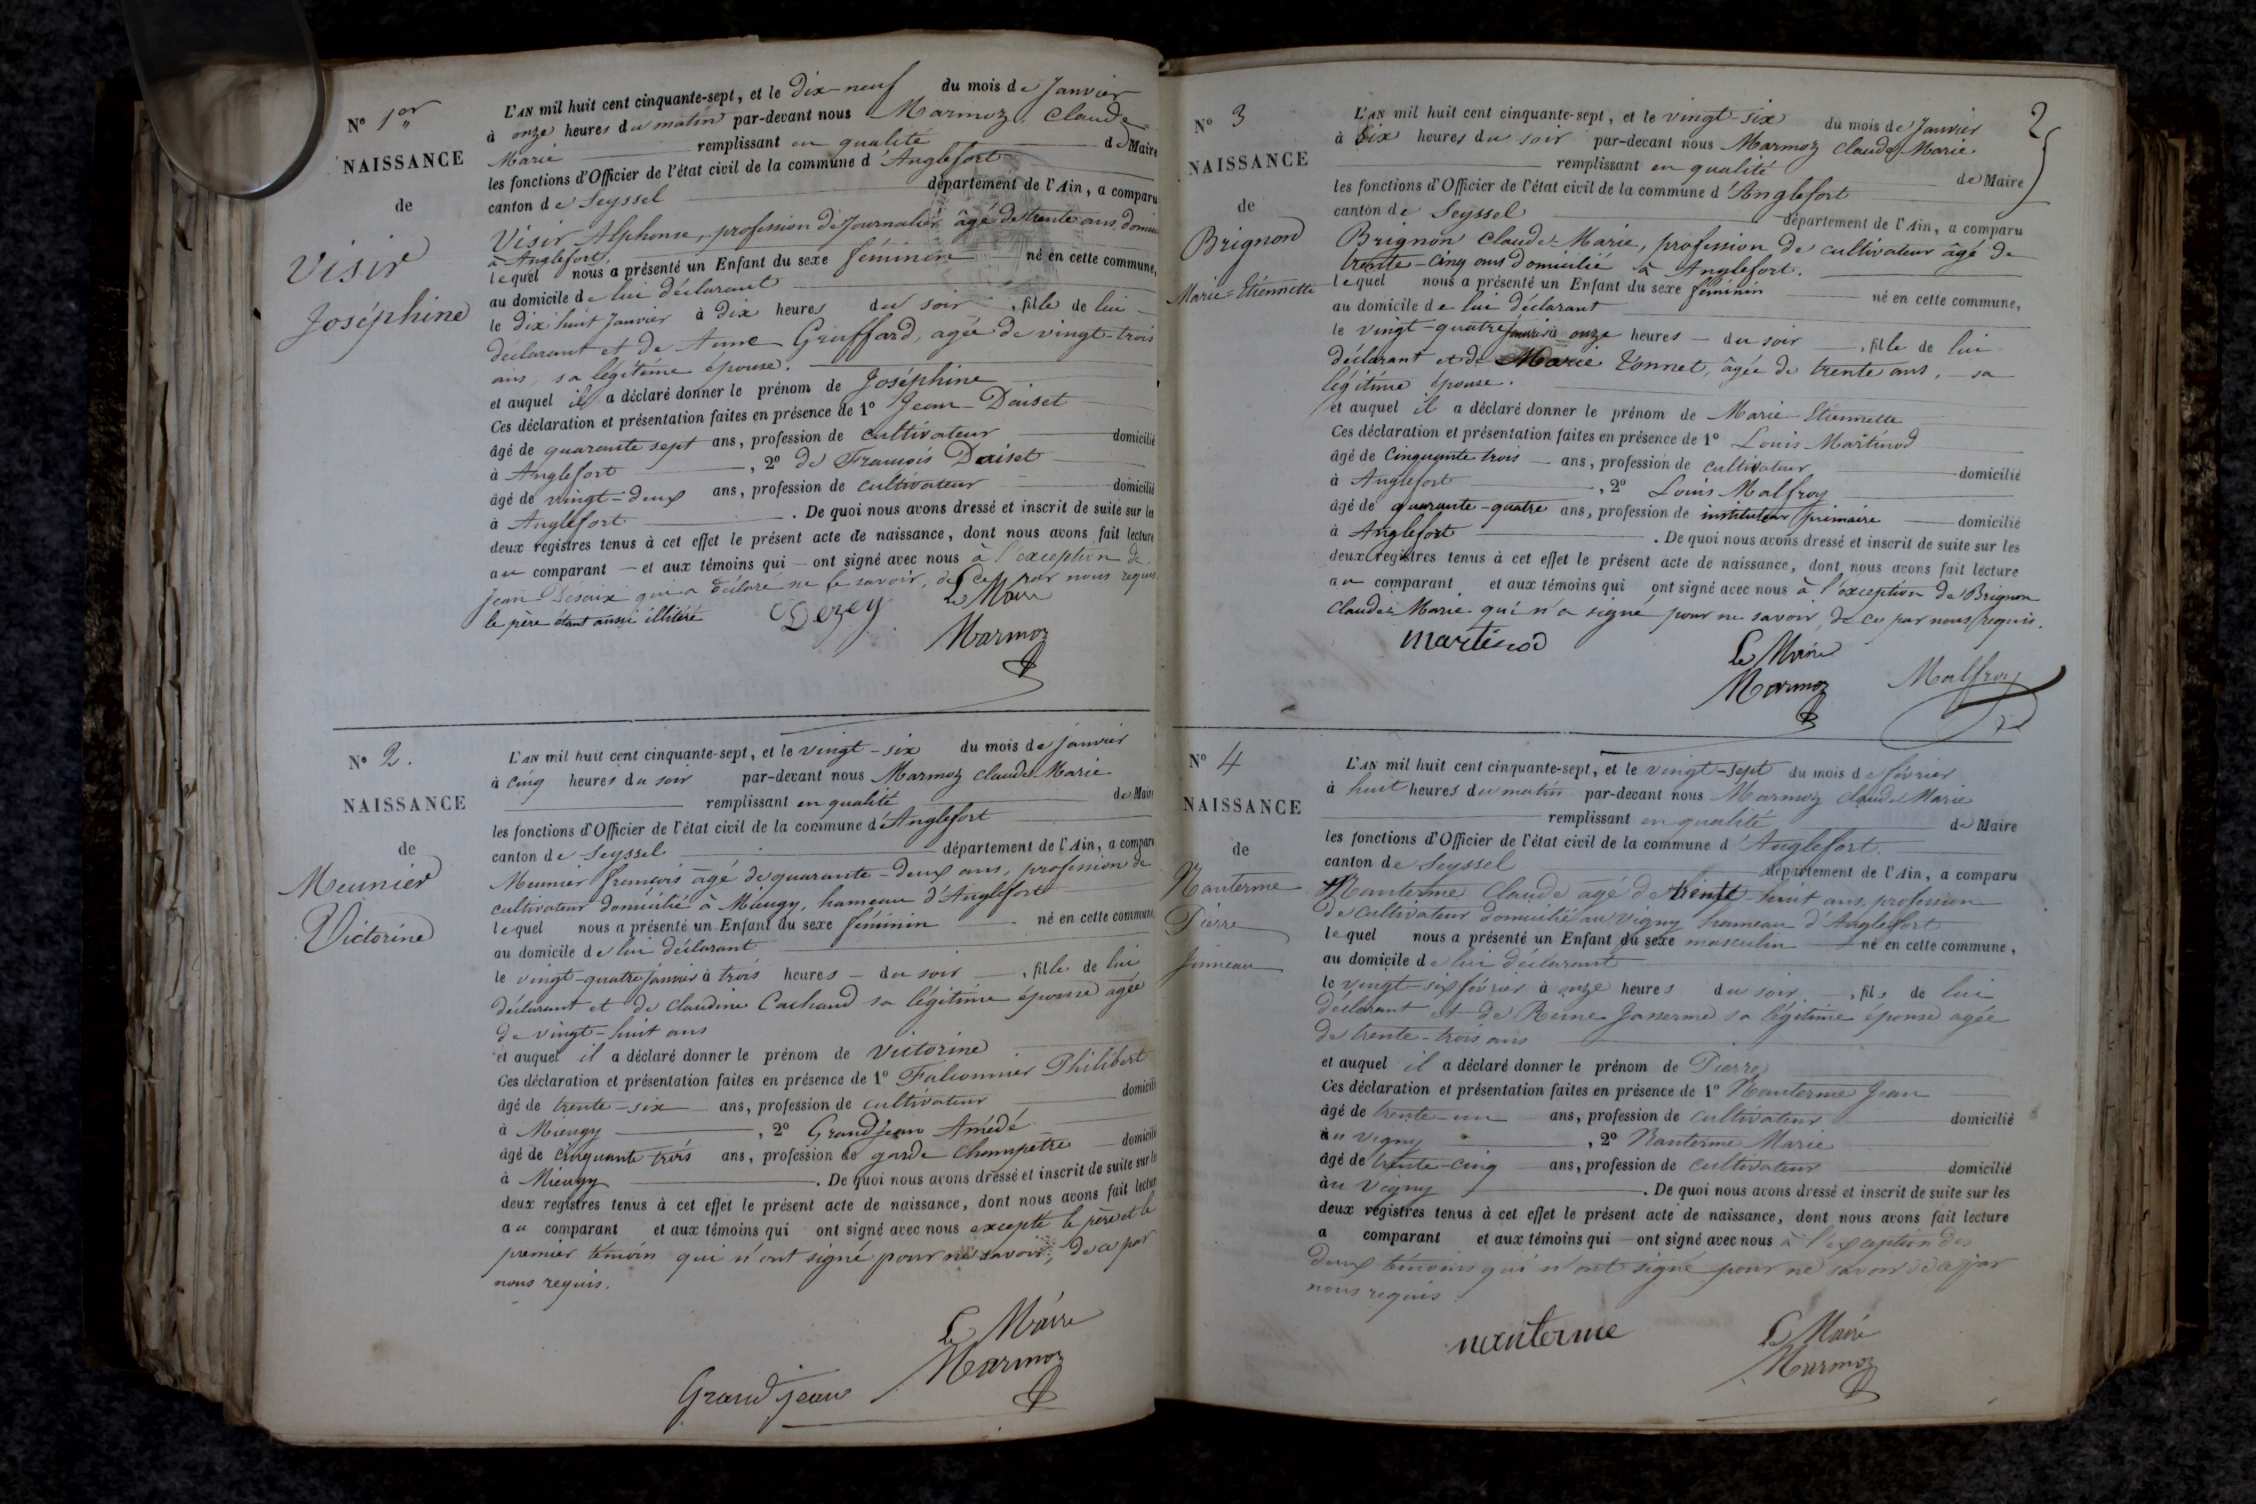 N° 1er
NAISSANCE
de
Visir
Joséphine
L'AN mil huit cent cinquante-sept, et le dix-neuf du mois de Janvier
à onze heures du matin par-devant nous Marmoz, Claude
Marie remplissant en qualité de Maire
les fonctions d'Officier de l'état civil de la commune d'Anglefort
canton de Seyssel département de l'Ain, a comparu
Visir Alphonse, profession de Journalier âgé de trente ans, domicilié
à Anglefort.
lequel nous a présenté un Enfant du sexe féminin né en cette commune,
au domicile de lui déclarant
le dix huit Janvier à dix heures du soir, fille de lui
déclarant et de Anne Griffard, agée de vingt-trois
ans, sa légitime épouse.
et auquel il a déclaré donner le prénom de Joséphine
Ces déclaration et présentation faites en présence de 1° Jean Daiset
âgé de quarante sept ans, profession de cultivateur domicilié
à Anglefort, 2° de François Daiset
âgé de vingt-deux ans, profession de cultivateur domicilié
à Anglefort. De quoi nous avons dressé et inscrit de suite sur les
deux registres tenus à cet effet le présent acte de naissance, dont nous avons fait lecture
au comparant et aux témoins qui ont signé avec nous à l'exception de
Jean qui a déclaré ne le savoir, de ce par nous requis
le père étant aussi illitéré
Le Maire
Dezey
Marmoz
N° 2.
NAISSANCE
de
Meunier
Victorine
L'AN mil huit cent cinquante-sept, et le vingt-six du mois de janvier
à cinq heures du soir par-devant nous Marmoz claude Marie
remplissant en qualité de Maire
les fonctions d'Officier de l'état civil de la commune d'Anglefort
canton de Seyssel département de l'Ain, a comparu
Meunier françois âgé de quarante-deux ans, profession de
cultivateur domicilié à Mieugy, hameau d'Anglefort
lequel nous a présenté un Enfant du sexe féminin né en cette commune,
au domicile de lui déclarant
le vingt-quatre janvier à trois heures du soir, fille de lui
déclarant et de claudine Cachaud sa légitime épouse agée
de vingt-huit ans
et auquel il a déclaré donner le prénom de Victorine
Ces déclaration et présentation faites en présence de 1° Falconnier Philibert
âgé de trente-six ans, profession de cultivateur domicilié
à Mieugy, 2° Grandjean Amédé
âgé de cinquante trois ans, profession de garde champêtre domicilié
à Mieugy. De quoi nous avons dressé et inscrit de suite sur les
deux registres tenus à cet effet le présent acte de naissance, dont nous avons fait lecture
au comparant et aux témoins qui ont signé avec nous excepté le père et le
premier témoin qui n'ont signé pour ne savoir, de ce par
nous requis.
Le Maire
Marmoz
Grandjean
2
N° 3
NAISSANCE
de
Brignon
Marie-Etiennette
L'AN mil huit cent cinquante-sept, et le vingt-six du mois de Janvier
à six heures du soir par-devant nous Marmoz claude Marie.
remplissant en qualité de Maire
les fonctions d'Officier de l'état civil de la commune d'Anglefort
canton de Seyssel département de l'Ain, a comparu
Brignon claude-Marie, profession de cultivateur âgé de
trente-cinq ans domicilié à Anglefort.
lequel nous a présenté un Enfant du sexe féminin né en cette commune,
au domicile de lui déclarant
le vingt-quatre janvier à onze heures du soir, fille de lui
déclarant et de Marie Tonnet, âgée de trente ans, sa
légitime épouse.
et auquel il a déclaré donner le prénom de Marie-Etiennette
Ces déclaration et présentation faites en présence de 1° Louis Martinod
âgé de cinquante trois ans, profession de cultivateur domicilié
à Anglefort, 2° Louis Malfroy
âgé de quarante-quatre ans, profession de instituteur primaire domicilié
à Anglefort. De quoi nous avons dressé et inscrit de suite sur les
deux registres tenus à cet effet le présent acte de naissance, dont nous avons fait lecture
au comparant et aux témoins qui ont signé avec nous à l'exception de Brignon
claude-Marie qui n'a signé pour ne savoir, de ce par nous requis.
martinod
Le Maire
Marmoz
Malfroy
N° 4
NAISSANCE
de
Nanterme
Pierre
Jumeau
L'AN mil huit cent cinquante-sept, et le vingt-sept du mois de février
à huit heures du matin par-devant nous Marmoz claude Marie
remplissant en qualité de Maire
les fonctions d'Officier de l'état civil de la commune d'Anglefort.
canton de Seyssel département de l'Ain, a comparu
Nanterme Claude agé de trente huit ans, profession
de cultivateur domicilié au Vigny hameau d'Anglefort
lequel nous a présenté un Enfant du sexe masculin né en cette commune,
au domicile de lui déclarant
le vingt-six février à onze heures du soir, fils de lui
déclarant et de Reine Janerme sa légitime épouse agée
de trente-trois ans
et auquel il a déclaré donner le prénom de Pierre
Ces déclaration et présentation faites en présence de 1° Nanterme Jean
âgé de trente-un ans, profession de cultivateur domicilié
au Vigny, 2° Nanterme Marie
âgé de trente-cinq ans, profession de cultivateur domicilié
au Vigny. De quoi nous avons dressé et inscrit de suite sur les
deux registres tenus à cet effet le présent acte de naissance, dont nous avons fait lecture
a comparant et aux témoins qui ont signé avec nous à l'exception des
deux témoins qui n'ont signé pour ne savoir de ce par
nous requis.
nanterme
Le Maire
Marmoz